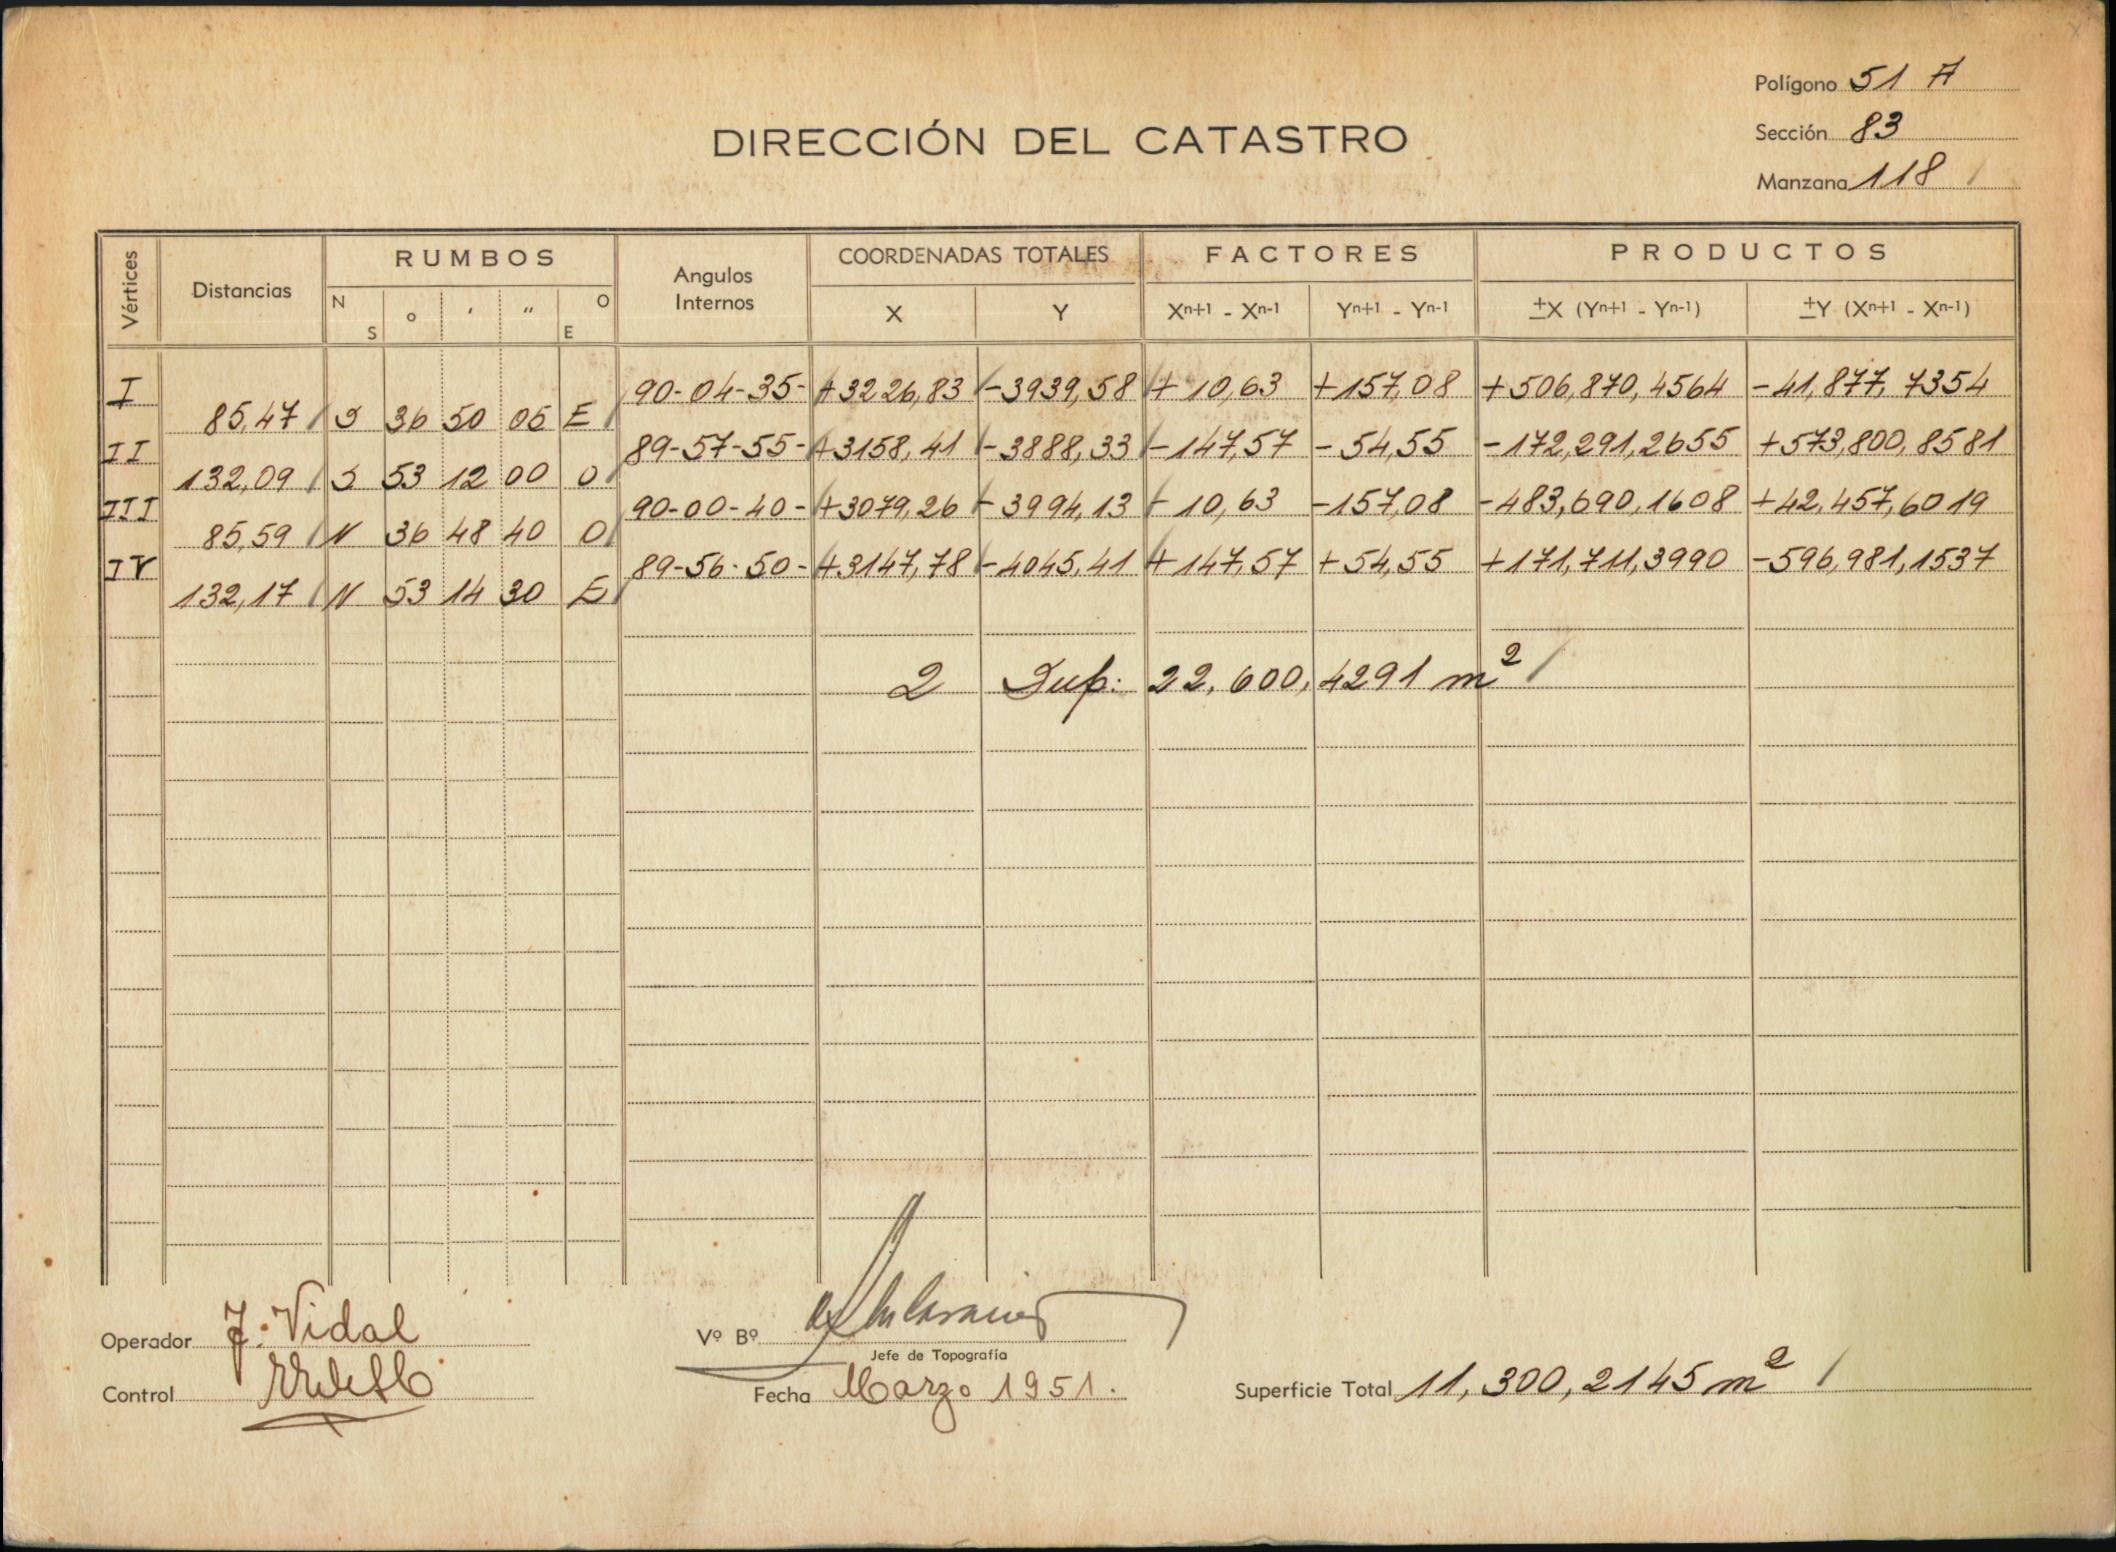 Polígono 51 A
DIRECCIÓN DEL CATASTRO
Sección 83
Manzana 118
Vértices Distancias RUMBOS Angulos Internos COORDENADAS TOTALES FACTORES PRODUCTOS
N S o ' " O E X Y Xn+1 - Xn-1 Yn+1 - Yn-1 ±X (Yn+1 - Yn-1) ±Y (Xn+1 - Xn-1)
I 90-04-35- +3226,83 -3939,58 + 10,63 +157,08 +506,870,4564 -41,877,7354
85,47 S 36 50 05 E
II 89-57-55- +3158,41 -3888,33 -147,57 -54,55 -172,291,2655 +573,800,8581
132,09 S 53 12 00 O
III 90-00-40- +3079,26 -3994,13 - 10,63 -157,08 -483,690,1608 +42,457,6019
85,59 N 36 48 40 O
IV 89-56-50- +3147,78 -4045,41 +147,57 +54,55 +171,711,3990 -596,981,1537
132,17 N 53 14 30 E
2 Sup: 22,600,4291 m²
Operador J. Vidal
Vº Bº
Jefe de Topografía
Control
Fecha Marzo 1951.
Superficie Total 11,300,2145 m²